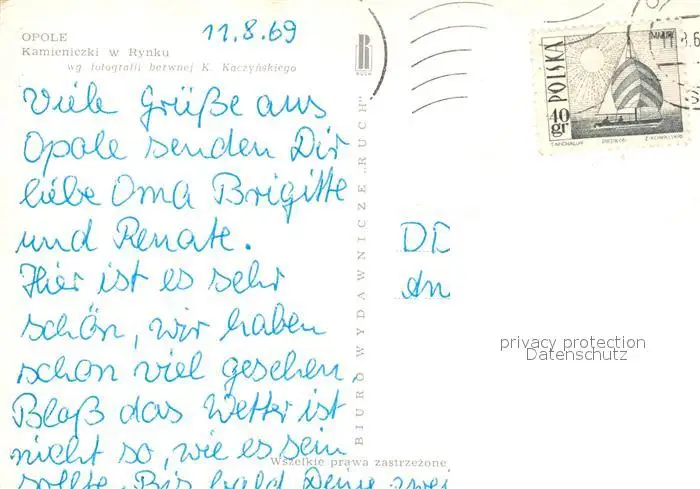 OPOLE
Kamieniczki w Rynku
wg fotografii barwnej K. Kaczyńskiego
11.8.69
Viele Grüße aus
Opole senden Dir
liebe Oma Brigitte
und Renate.
Hier ist es sehr
schön, wir haben
schon viel gesehen,
Bloß das Wetter ist
nicht so, wie es sein
sollte. Bis bald Deine zwei
BIURO WYDAWNICZE „RUCH"
RUCH
Wszelkie prawa zastrzeżone
POLSKA
40 gr
DD
An
privacy protection
Datenschutz